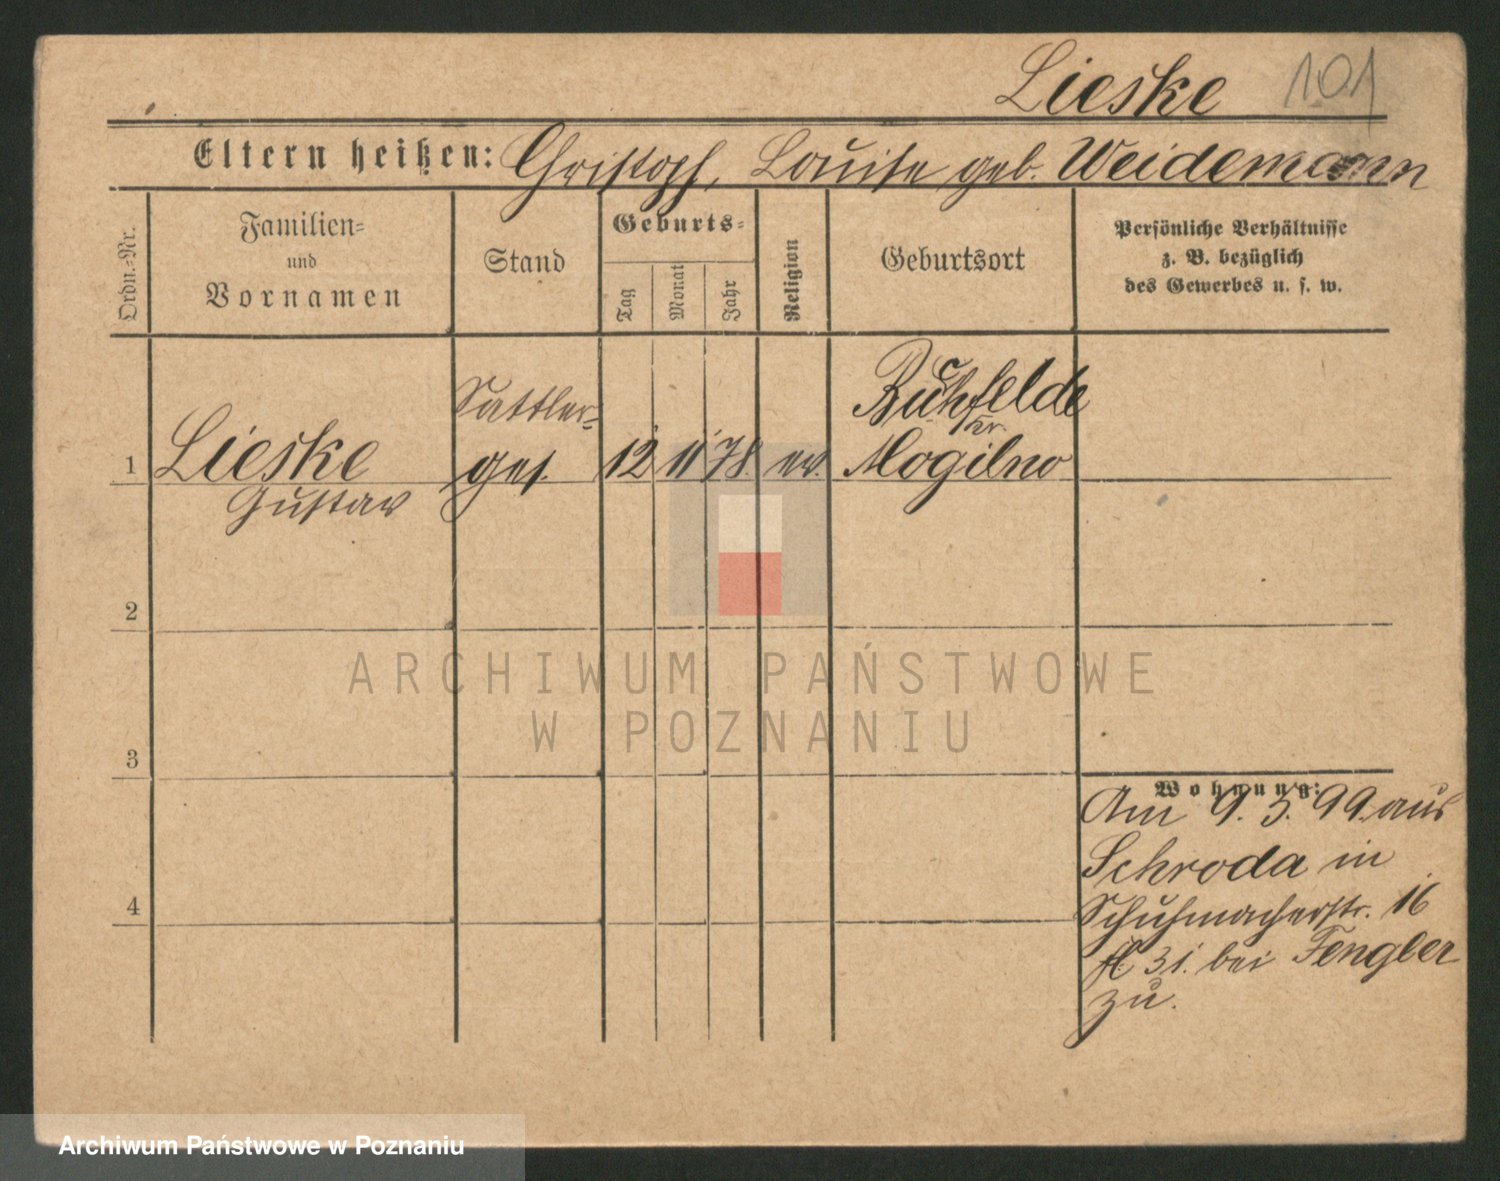 Lieske 101
Eltern heißen: Christoph, Louise geb. Weidemann
Ordn.-Nr.
Familien-
und
Vornamen
Stand
Geburts-
Tag
Monat
Jahr
Religion
Geburtsort
Persönliche Verhältnisse
z. B. bezüglich
des Gewerbes u. s. w.
1
Lieske
Gustav
Sattler-
ges.
12
11
78.
ev.
Kr.
Mogilno
2
3
4
Wohnung:
Am 9. 5. 99. aus
Schroda in
Schuhmacherstr. 16
bei Fengler
zu.
ARCHIWUM PAŃSTWOWE
W POZNANIU
Archiwum Państwowe w Poznaniu